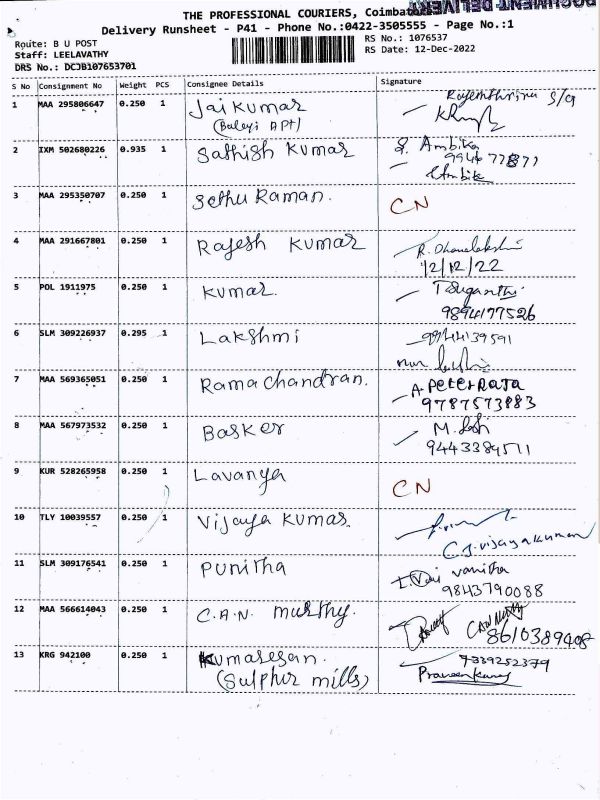 THE PROFESSIONAL COURIERS, Coimbatore
DOCUMENT DELIVERY
Delivery Runsheet - P41 - Phone No.:0422-3505555 - Page No.:1
Route: B U POST
Staff: LEELAVATHY
DRS No.: DCJB107653701
RS No.: 1076537
RS Date: 12-Dec-2022
S No Consignment No Weight PCS Consignee Details Signature
1 MAA 295806647 0.250 1 Jai Kumar
(Balaji APT)
S/G
2 IXM 502680226 0.935 1 Sathish Kumar
Ambika
3 MAA 295350707 0.250 1 Sethu Raman. CN
4 MAA 291667801 0.250 1 Rajesh Kumar
R. Dhanalakshmi
12/12/22
5 POL 1911975 0.250 1 Kumar.
9894177526
6 SLM 309226937 0.295 1 Lakshmi 9944139591
7 MAA 569365051 0.250 1 Rama Chandran. A. PeterRaja
9787573883
8 MAA 567973532 0.250 1 Basker
9443384511
9 KUR 528265958 0.250 1 Lavanya CN
10 TLY 10039557 0.250 1 Vijaya Kumar.
C.J. Vijayakumar
11 SLM 309176541 0.250 1 Punitha vanitha
9843790088
12 MAA 566614043 0.250 1 C.A.N. Murthy.
8610389408
13 KRG 942100 0.250 1 Kumaresan. 7339252379
(Sulphur mills) Praveen Kumar